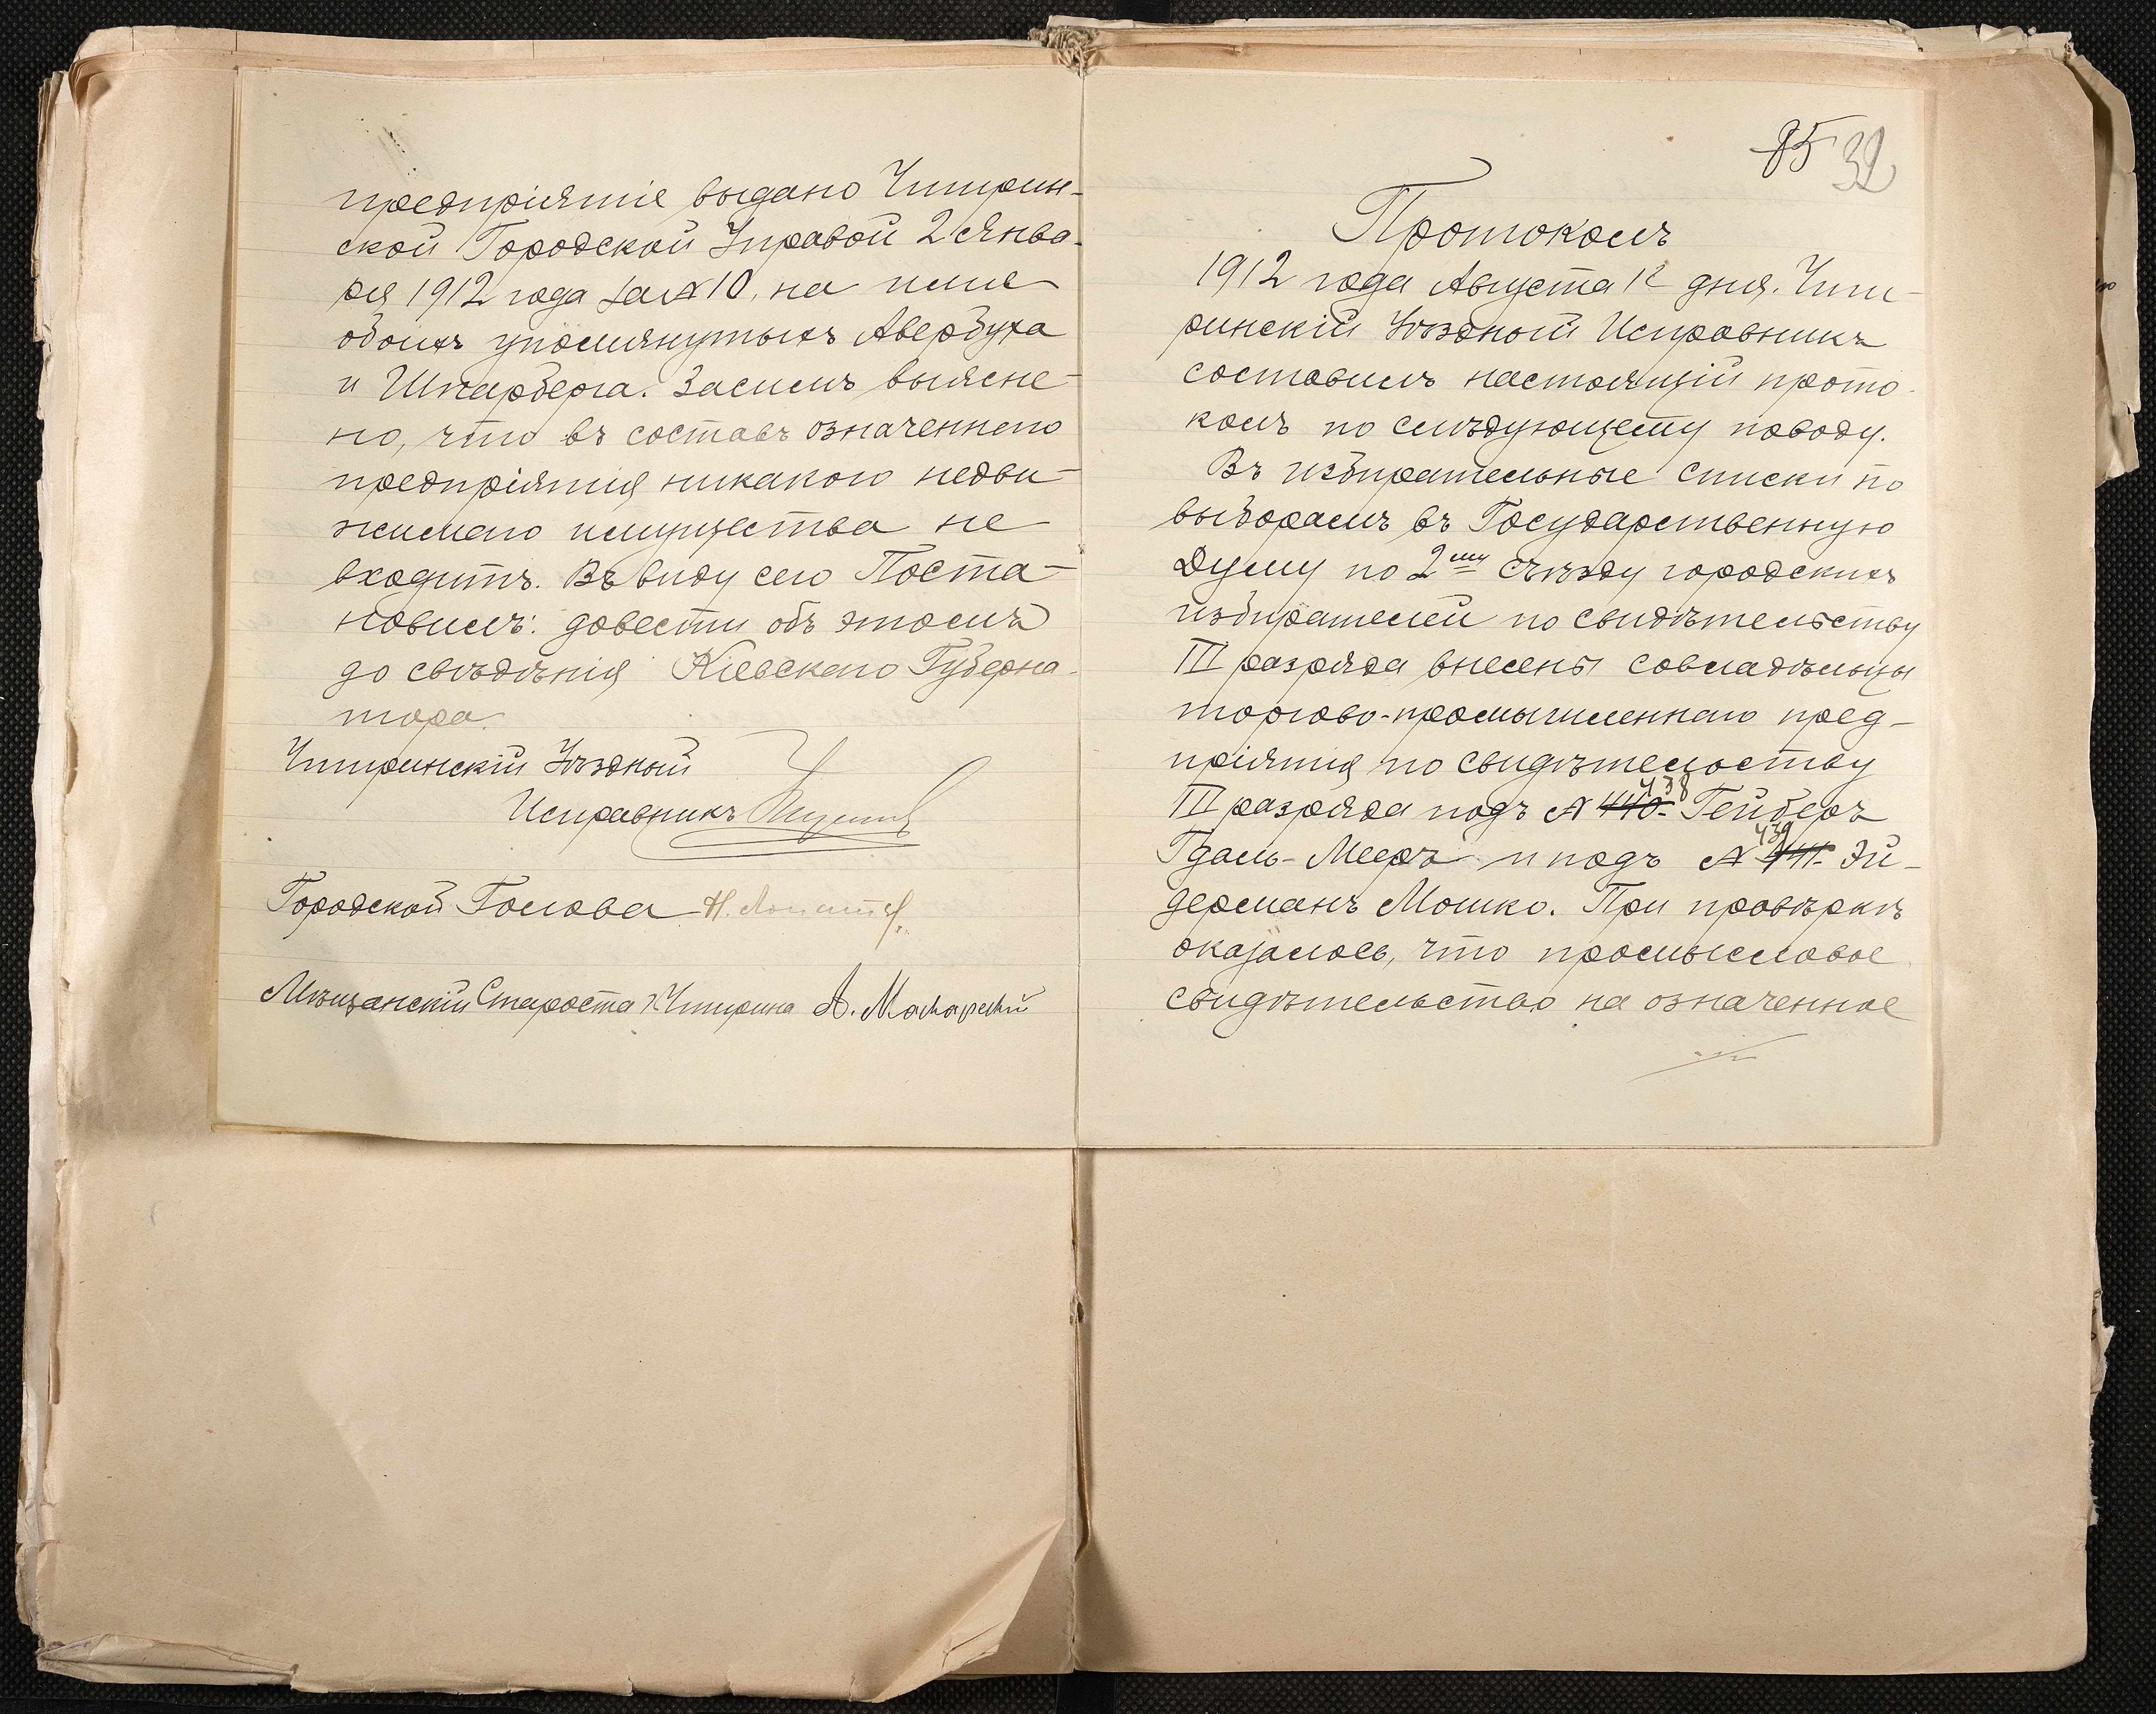 предпріятіе выдано Чигирин-
ской Городской Управой 2 Янва-
ря 1912 года за № 10, на имя
обоихъ упомянутыхъ Авербуха
и Шпарберга. Засимъ выясне-
но, что въ составъ означеннаго
предпріятія никакого недви-
жимаго имущества не
входитъ. Въ виду сего Поста-
новилъ: довести объ этомъ
до свѣдѣнія Кіевскаго Губерна-
тора.
Чигиринскій Уѣздный
Исправникъ
Городской Голова Н.
Мѣщанскій Староста г. Чигирина А. Макаревич
85 32
Протоколъ
1912 года Августа 12 дня. Чиги-
ринскій Уѣздной Исправникъ
составилъ настоящій прото-
колъ по слѣдующему поводу.
Въ избирательные списки по
выборамъ въ Государственную
Думу по 2му съѣзду городскихъ
избирателей по свидѣтельству
III разряда внесены совладѣльцы
торгово-промышленнаго пред-
пріятія по свидѣтельству
III разряда подъ № 440 438 Гейберъ
Гдаль-Мееръ и подъ № 441 439 Эй-
дерманъ Мошко. При провѣркѣ
оказалось, что промысловое
свидѣтельство на означенное